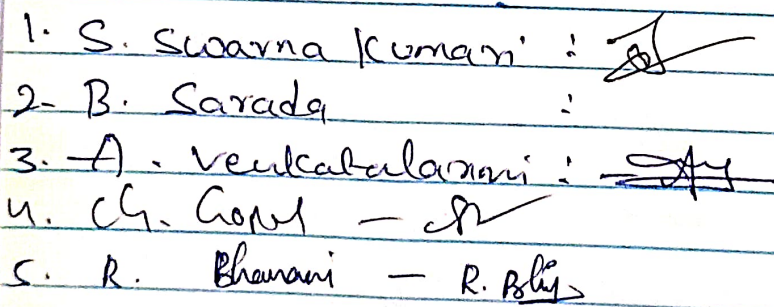 1. S. Swarna Kumari :
2- B. Sarada :
3. A. Venkatalaxmi :
4. Ch. Gopal -
5. R. Bhavani - R. Bh